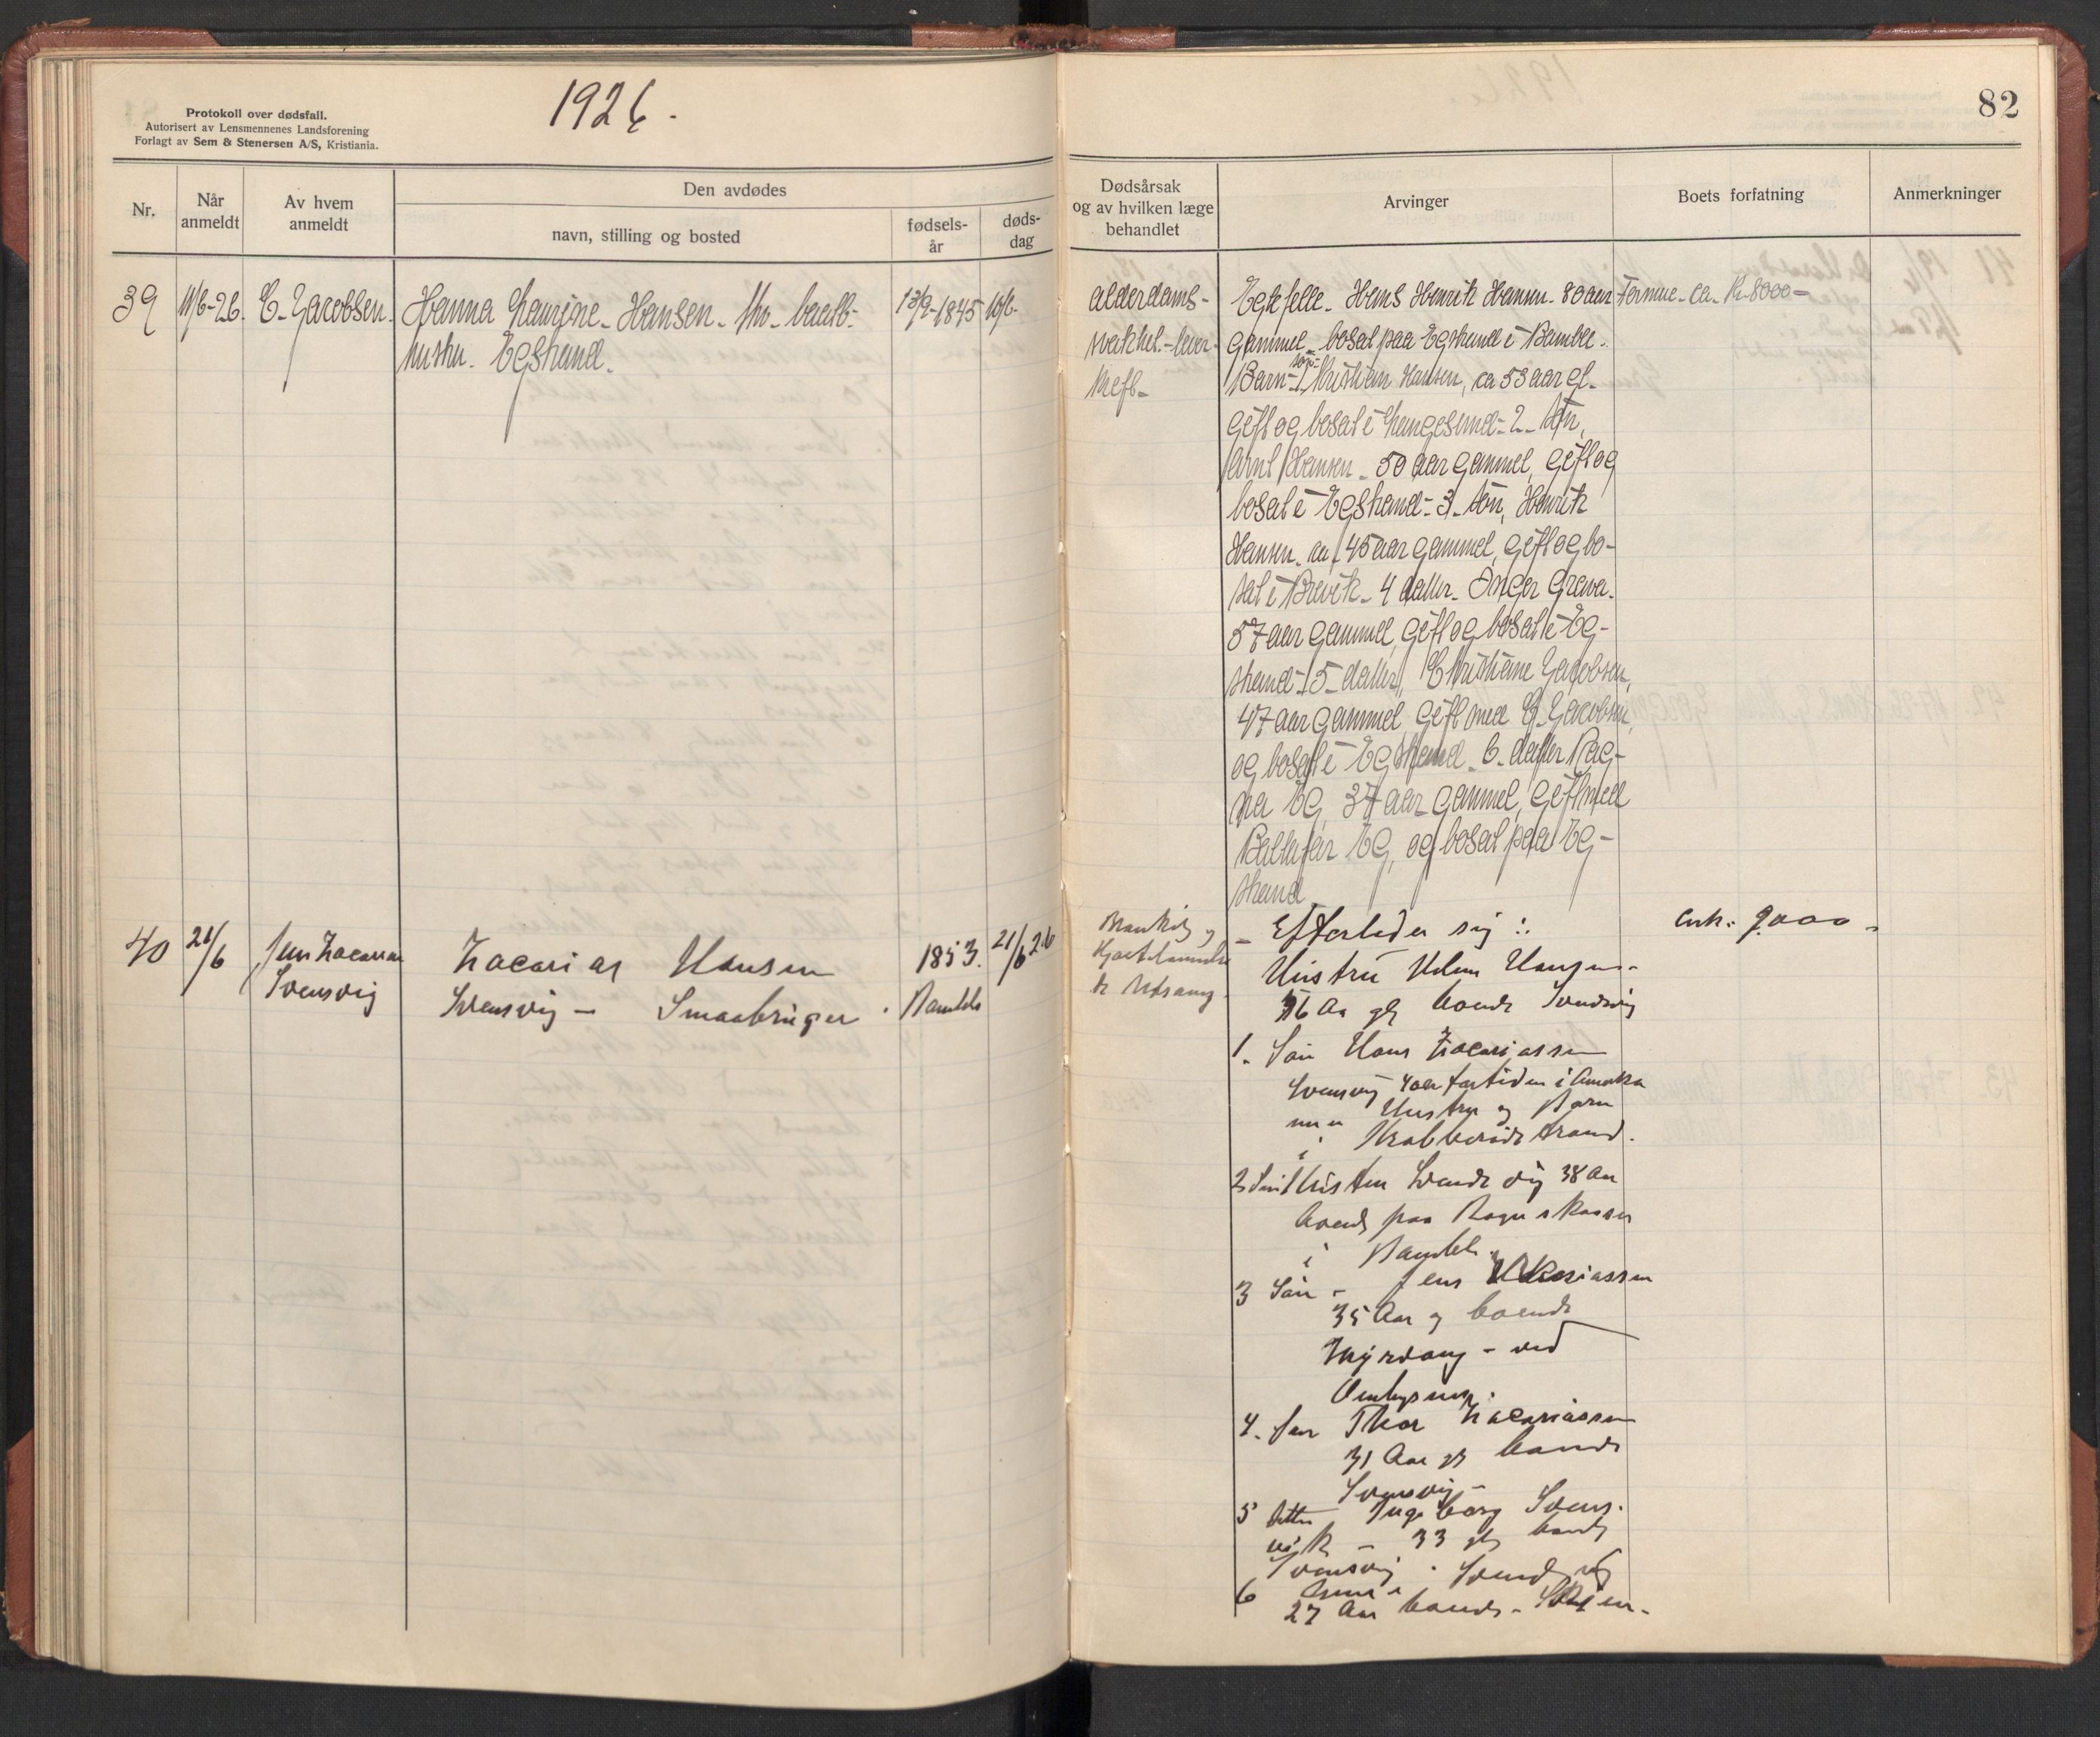 1926.
82
Protokoll over dødsfall.
Autorisert av Lensmennenes Landsforening
Forlagt av Sem & Stenersen A/S, Kristiania.
Nr.
Når
anmeldt
Av hvem
anmeldt
Den avdødes
navn, stilling og bosted
fødsels-
år
døds-
dag
Dødsårsak
og av hvilken læge
behandlet
Arvinger
Boets forfatning
Anmerkninger
39
11/6-26.
E. Jacobsen.
Hanna Laurine Hansen
hustru. Egstrand.
13/2-1845
10/6-
alderdoms-
svakhet.-lever
kreft-
Egtefelle. Hans Henrik Hansen. 80 aar
gammel, bosat paa Egstrand i Bamble.
Barn-1 søn Kristian Hansen, ca 53 aar gl.
gift og bosat i Langesund-2-søn,
Arnt Hansen-50 aar gammel, gift og
bosat i Egstrand-3-søn, Henrik
Hansen ca 45 aar gammel, gift og bo-
sat i Brevik-4 datter- Inger Grava.
57 aar gammel, gift og bosat i Eg-
strand-5-datter, Christiane Jacobsen,
47 aar gammel gift med E. Jacobsen
og bosat i Egstrand. 6. datter Rag-
na Eg, 37 aar gammel, gift med
Eg, og bosat paa Eg-
strand
Formue-ca. Kr 8000-
40
21/6
Jens Zacarias
Svensvig
Zacarias Hansen
Svensvig - Smaabruger
1853.
Bamble
21/6 26
og
Efterlader sig:
Hustru Hansen-
76 Aar gl boende Svensvig
1. Søn Hans Zacariassen
Svensvig for tiden i Amerika
Hustru og Børn
i Krabberødstrand.
2 Søn Kristen Svendsvig 38 Aar
boende paa
i Bamble.
3 Søn - Jens Zakariassen
35 Aar og boende
- ved
4. Søn Thor Zacariassen
31 Aar gl boende
Svensvig-
5 Datter Ingeborg Svens-
vik - 33 gl boende
Svensvig.
6 Svendsvig
27 Aar boende- Skien-
9000